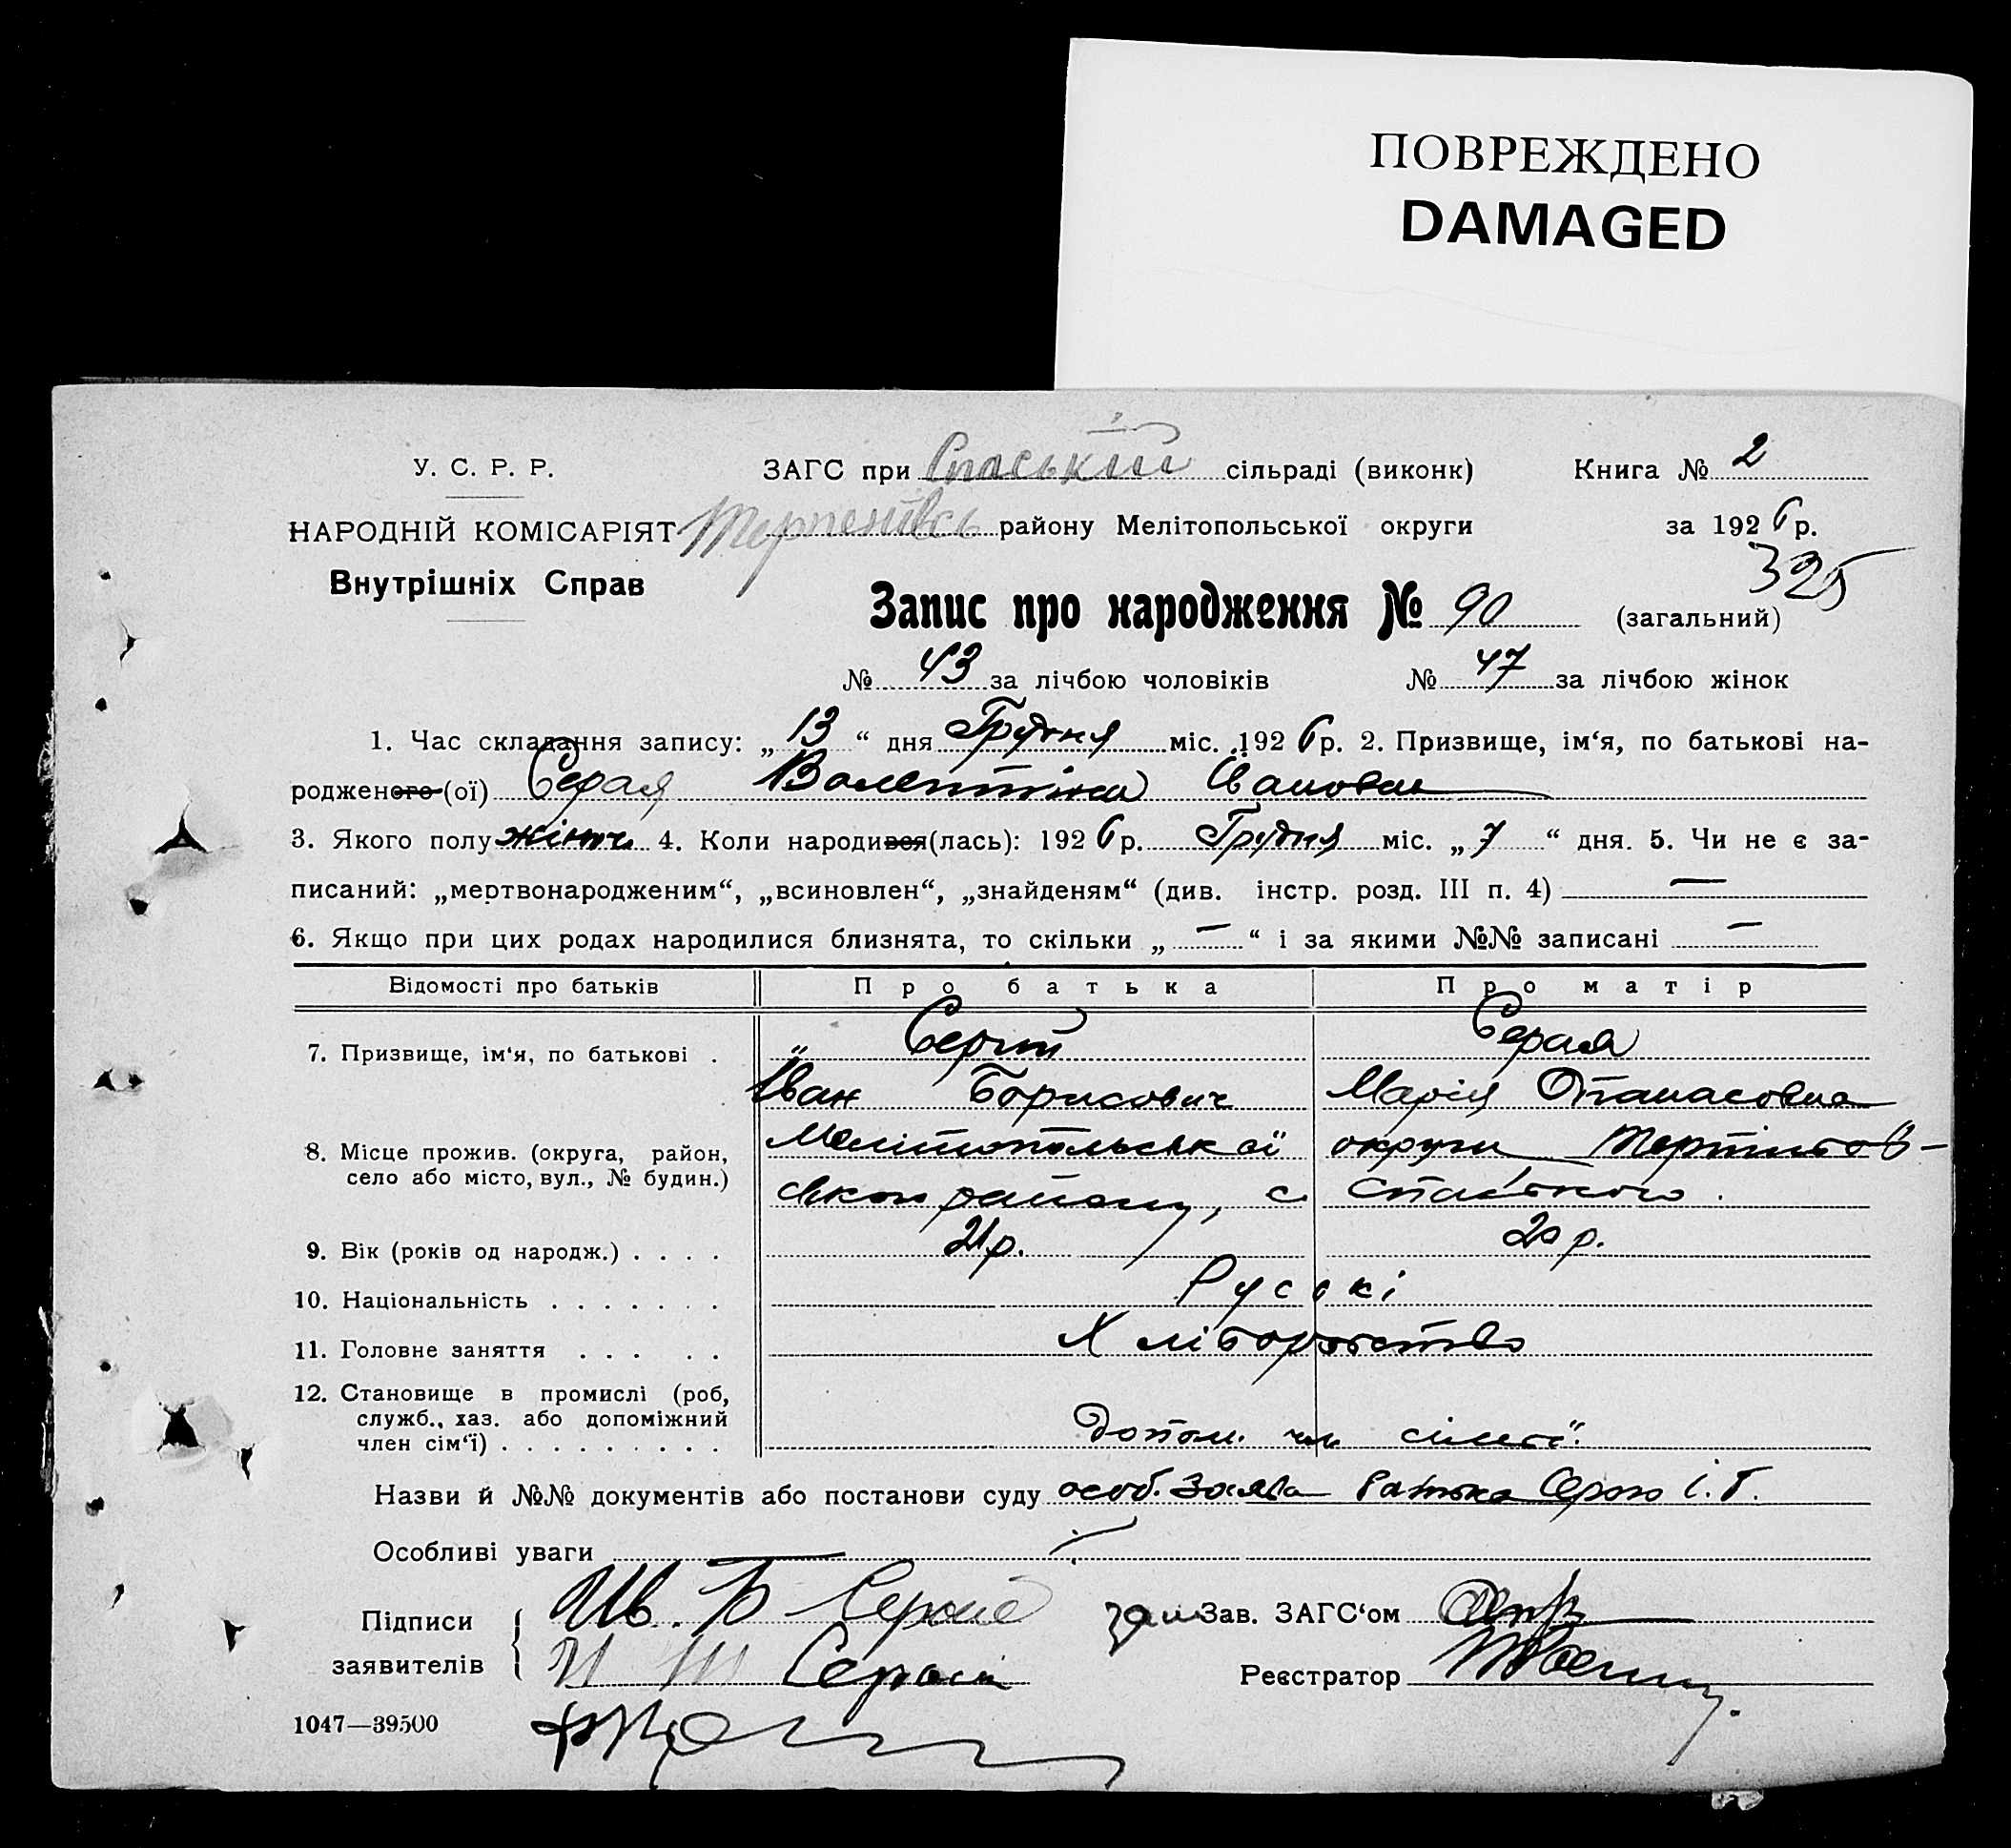 ПОВРЕЖДЕНО
DAMAGED
У. С. Р. Р. ЗАГС при Спаській сільраді (виконк) Книга № 2
НАРОДНІЙ КОМІСАРІЯТ району Мелітопольської округи за 1926 р.
325
Внутрішніх Справ
Запис про народження № 90 (загальний)
№ 43 за лічбою чоловіків № 47 за лічбою жінок
1. Час складання запису: „ 13 “ дня Грудня міс. 1926 р. 2. Призвище, ім‘я, по батькові на-
родженого (ої) Серая Валентіна Івановна
3. Якого полу жіноч. 4. Коли народився(лась): 1926 р. Грудня міс. „ 7 “ дня. 5. Чи не є за-
писаний: „мертвонародженим“, „всиновлен“, „знайденям“ (див. інстр. розд. III п. 4) —
6. Якщо при цих родах народилися близнята, то скільки „ — “ і за якими №№ записані —
Відомості про батьків Про батька Про матір
7. Призвище, ім‘я, по батькові . Серий Серая
Іван Борисович Марія Опанасовна
8. Місце прожив. (округа, район, Мелітопольської округи
село або місто, вул., № будин.) ського району, с. Спаського.
9. Вік (років од народж.) . . . . 21 р. 20 р.
10. Національність . . . . . . . Руські
11. Головне заняття . . . . . Хліборобство
12. Становище в промислі (роб,
служб., хаз. або допоміжний
член сім‘ї) . . . . . . . . . Допом. чл. сімьї.
Назви й №№ документів або постанови суду особ. заява батька Серого І. Б.
Особливі уваги —
Підписи Ив. Б Серый зам Зав. ЗАГС‘ом
заявителів Серый Реєстратор
1047—39500